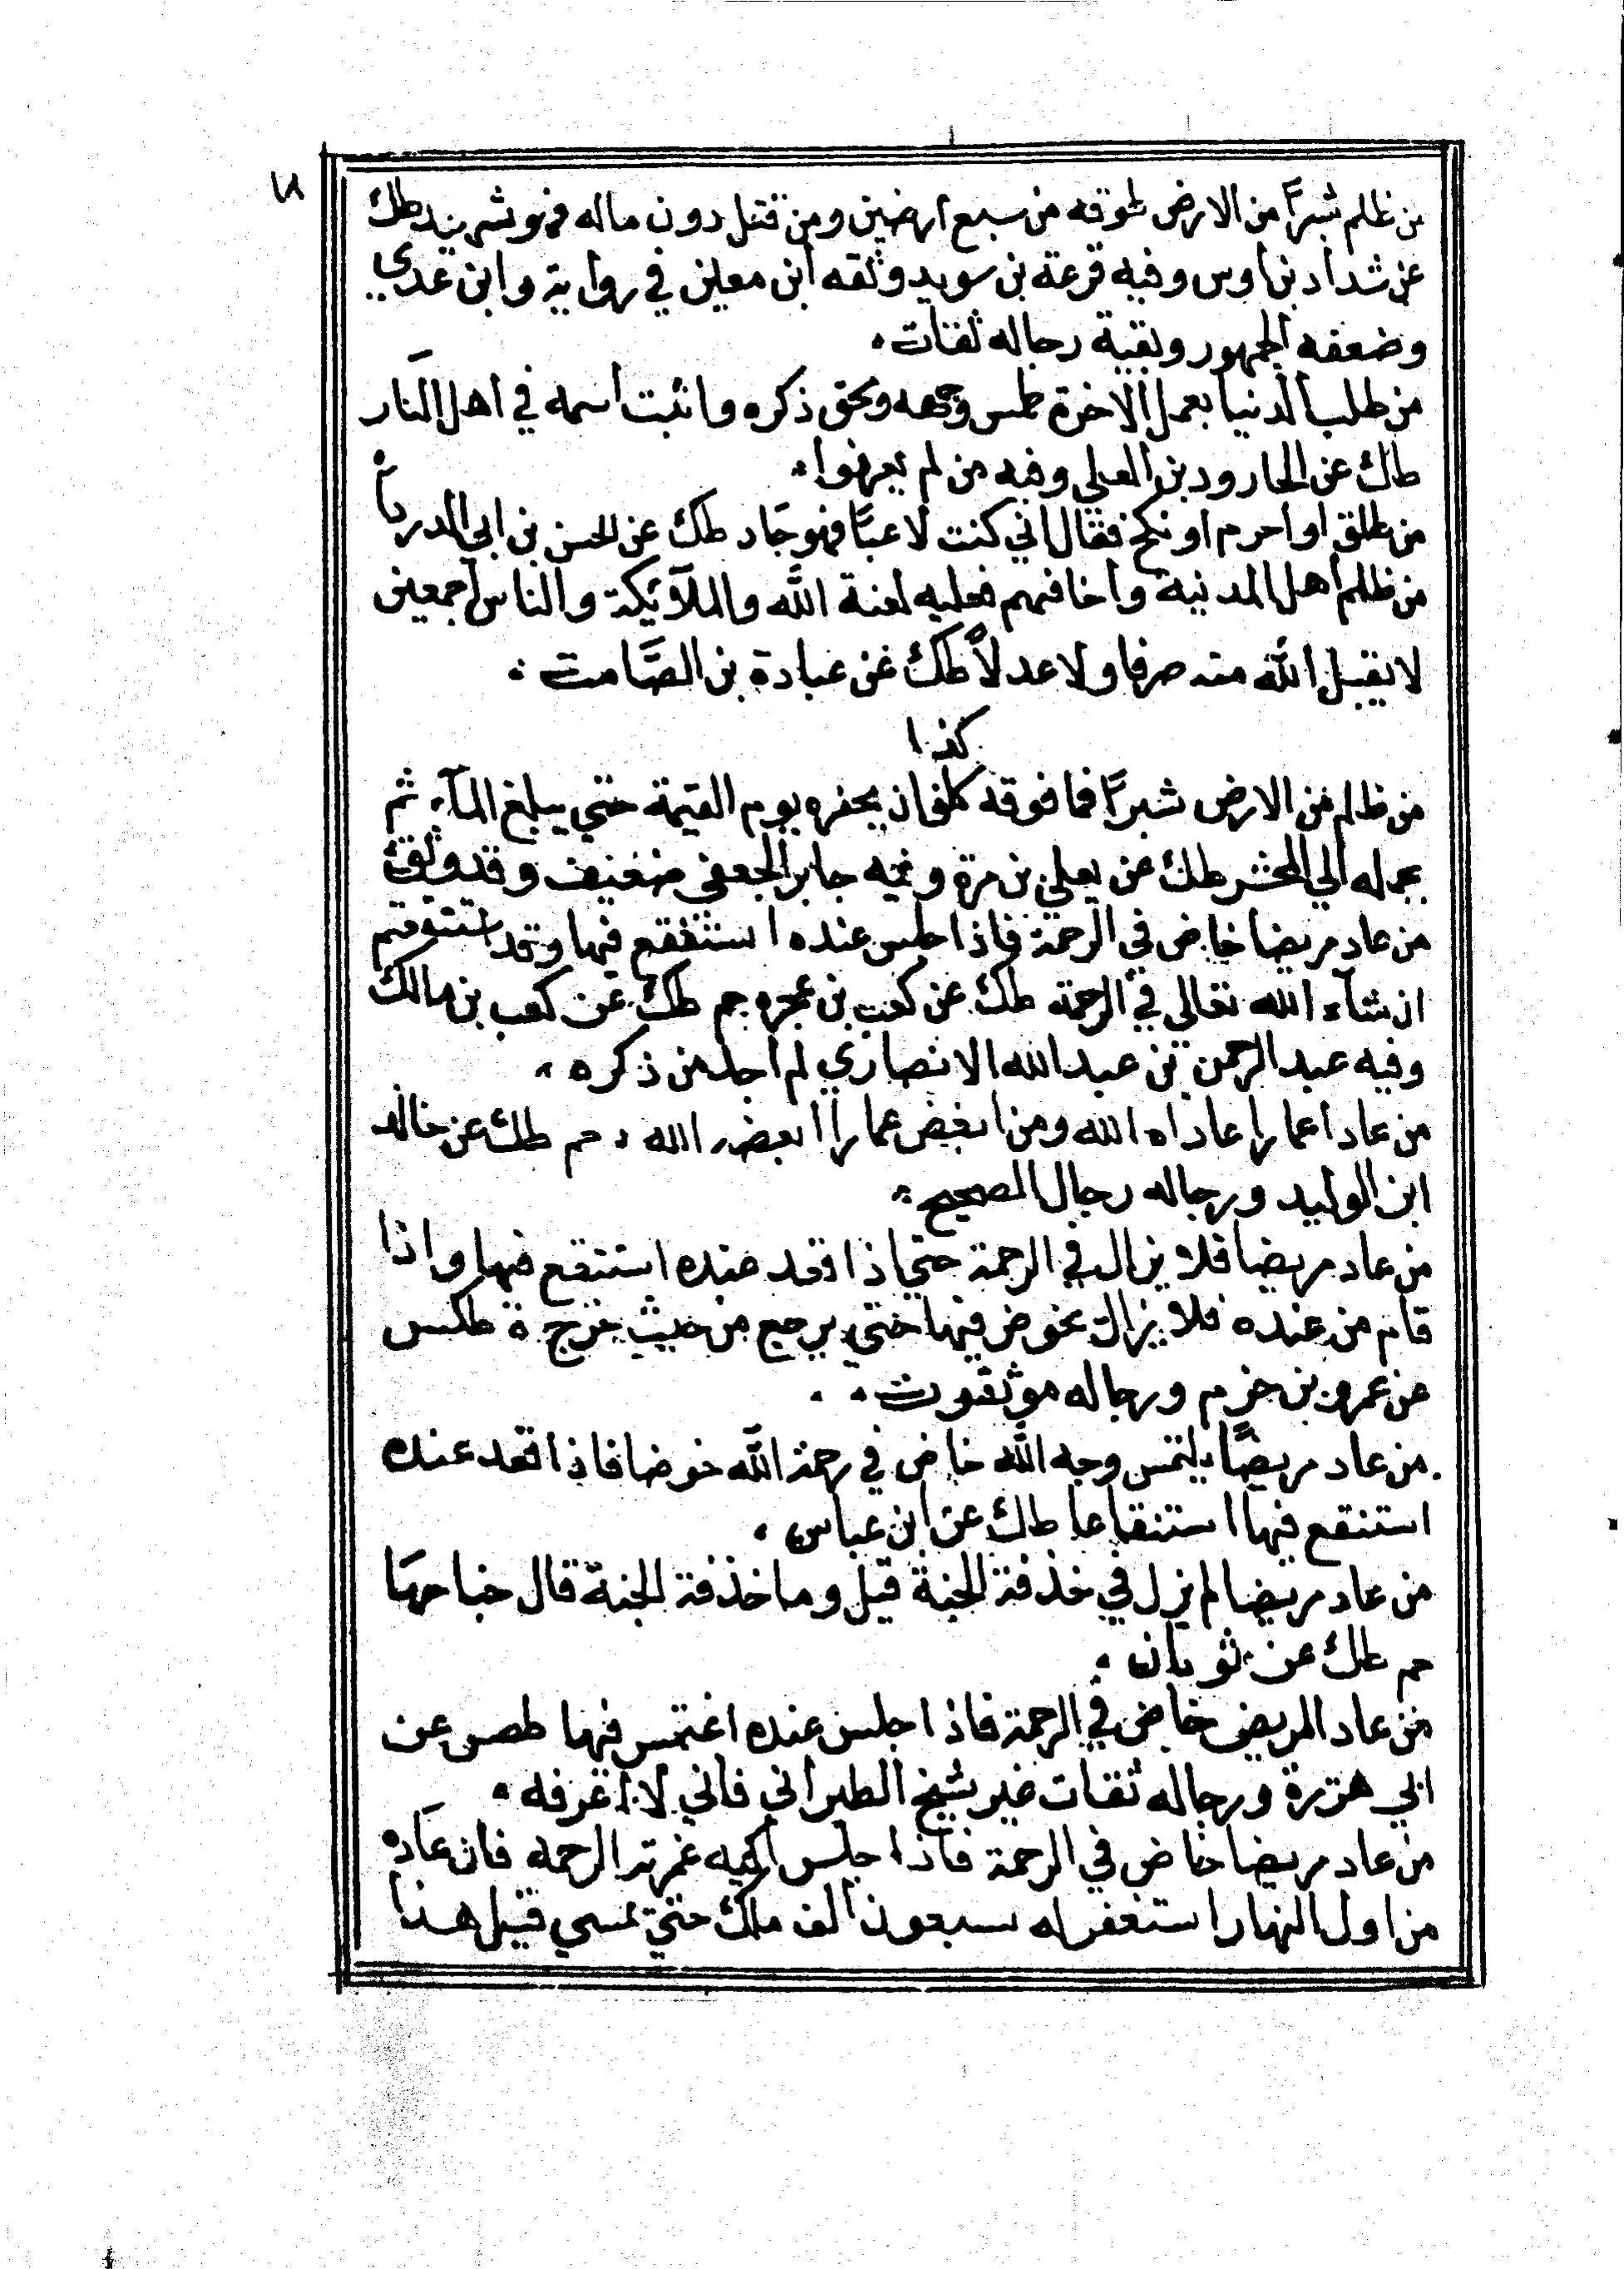 من ظلم شبرًا من الارض طوقه من سبع ارضين ومن قتل دون ماله فهو شهيد طك
عن شداد بن اوس وفيه قزعة بن سويد وثقه ابن معين في رواية وابن عدي
وضعفه الجمهور وبقية رجاله ثقات.
من طلب الدنيا بعمل الاخرة طمس وجهه ومحق ذكره واثبت اسمه في اهل النار
طك عن الجارود بن المعلي وفيه من لم يعرفوا.
من طلق او احرم او نكح فقال اني كنت لاعبًا فهو جَاد طك عن الحسن بن ابي الدرداء
من ظلم اهل المدينة واخافهم فعليه لعنة الله والملآئكة والناس اجمعين
لا يقبل الله منه صرفا ولا عدلاً طك عن عبادة بن الصَّامت.
كذا
من ظلم من الارض شبرًا فما فوقه كلف ان يحفره يوم القيمة حتي يبلغ المآء ثم
يحمله الي المحشر طك عن يعلي بن مرة وفيه جابر الجعفي ضعيف وقد وثق
من عاد مريضا خاض في الرحمة فاذا جلس عنده استنقع فيها وقد استنقعتم
ان شآء الله تعالي في الرحمة طك عن كعب بن عجره حم طك عن كعب بن مالك
وفيه عبد الرحمن بن عبد الله الانصاري لم اجد من ذكره.
من عادا عمارا عاداه الله ومن ابغض عمارا ابغضه الله . حم طك عن خالد
ابن الوليد ورجاله رجال الصحيح.
من عاد مريضا فلا يزال في الرحمة حتي اذا قعد عنده استنقع فيها واذا
قام من عنده فلا يزال يخوض فيها حتي يرجع من حيث خرج ة طكس
عن عمرو بن حزم ورجاله موثقون.
من عاد مريضًا يلتمس وجه الله خاض في رحمة الله خوضا فاذا قعد عنده
استنقع فيها استنقاعا طك عن ابن عباس.
من عاد مريضا لم يزل في خذفة الجنة قيل وما خذفة الجنة قال جناحهَا
حم طك عن ثوبان.
من عاد المريض خاض في الرحمة فاذا جلس عنده اغتمس فيها طصس عن
ابي هريرة ورجاله ثقات غير شيخ الطبراني فاني لا اعرفه.
من عاد مريضا خاض في الرحمة فاذا جلس اليه غمرته الرحمه فان عَاده
من اول النهار استغفر له سبعون الف ملك حتي يمسي قيل هذا